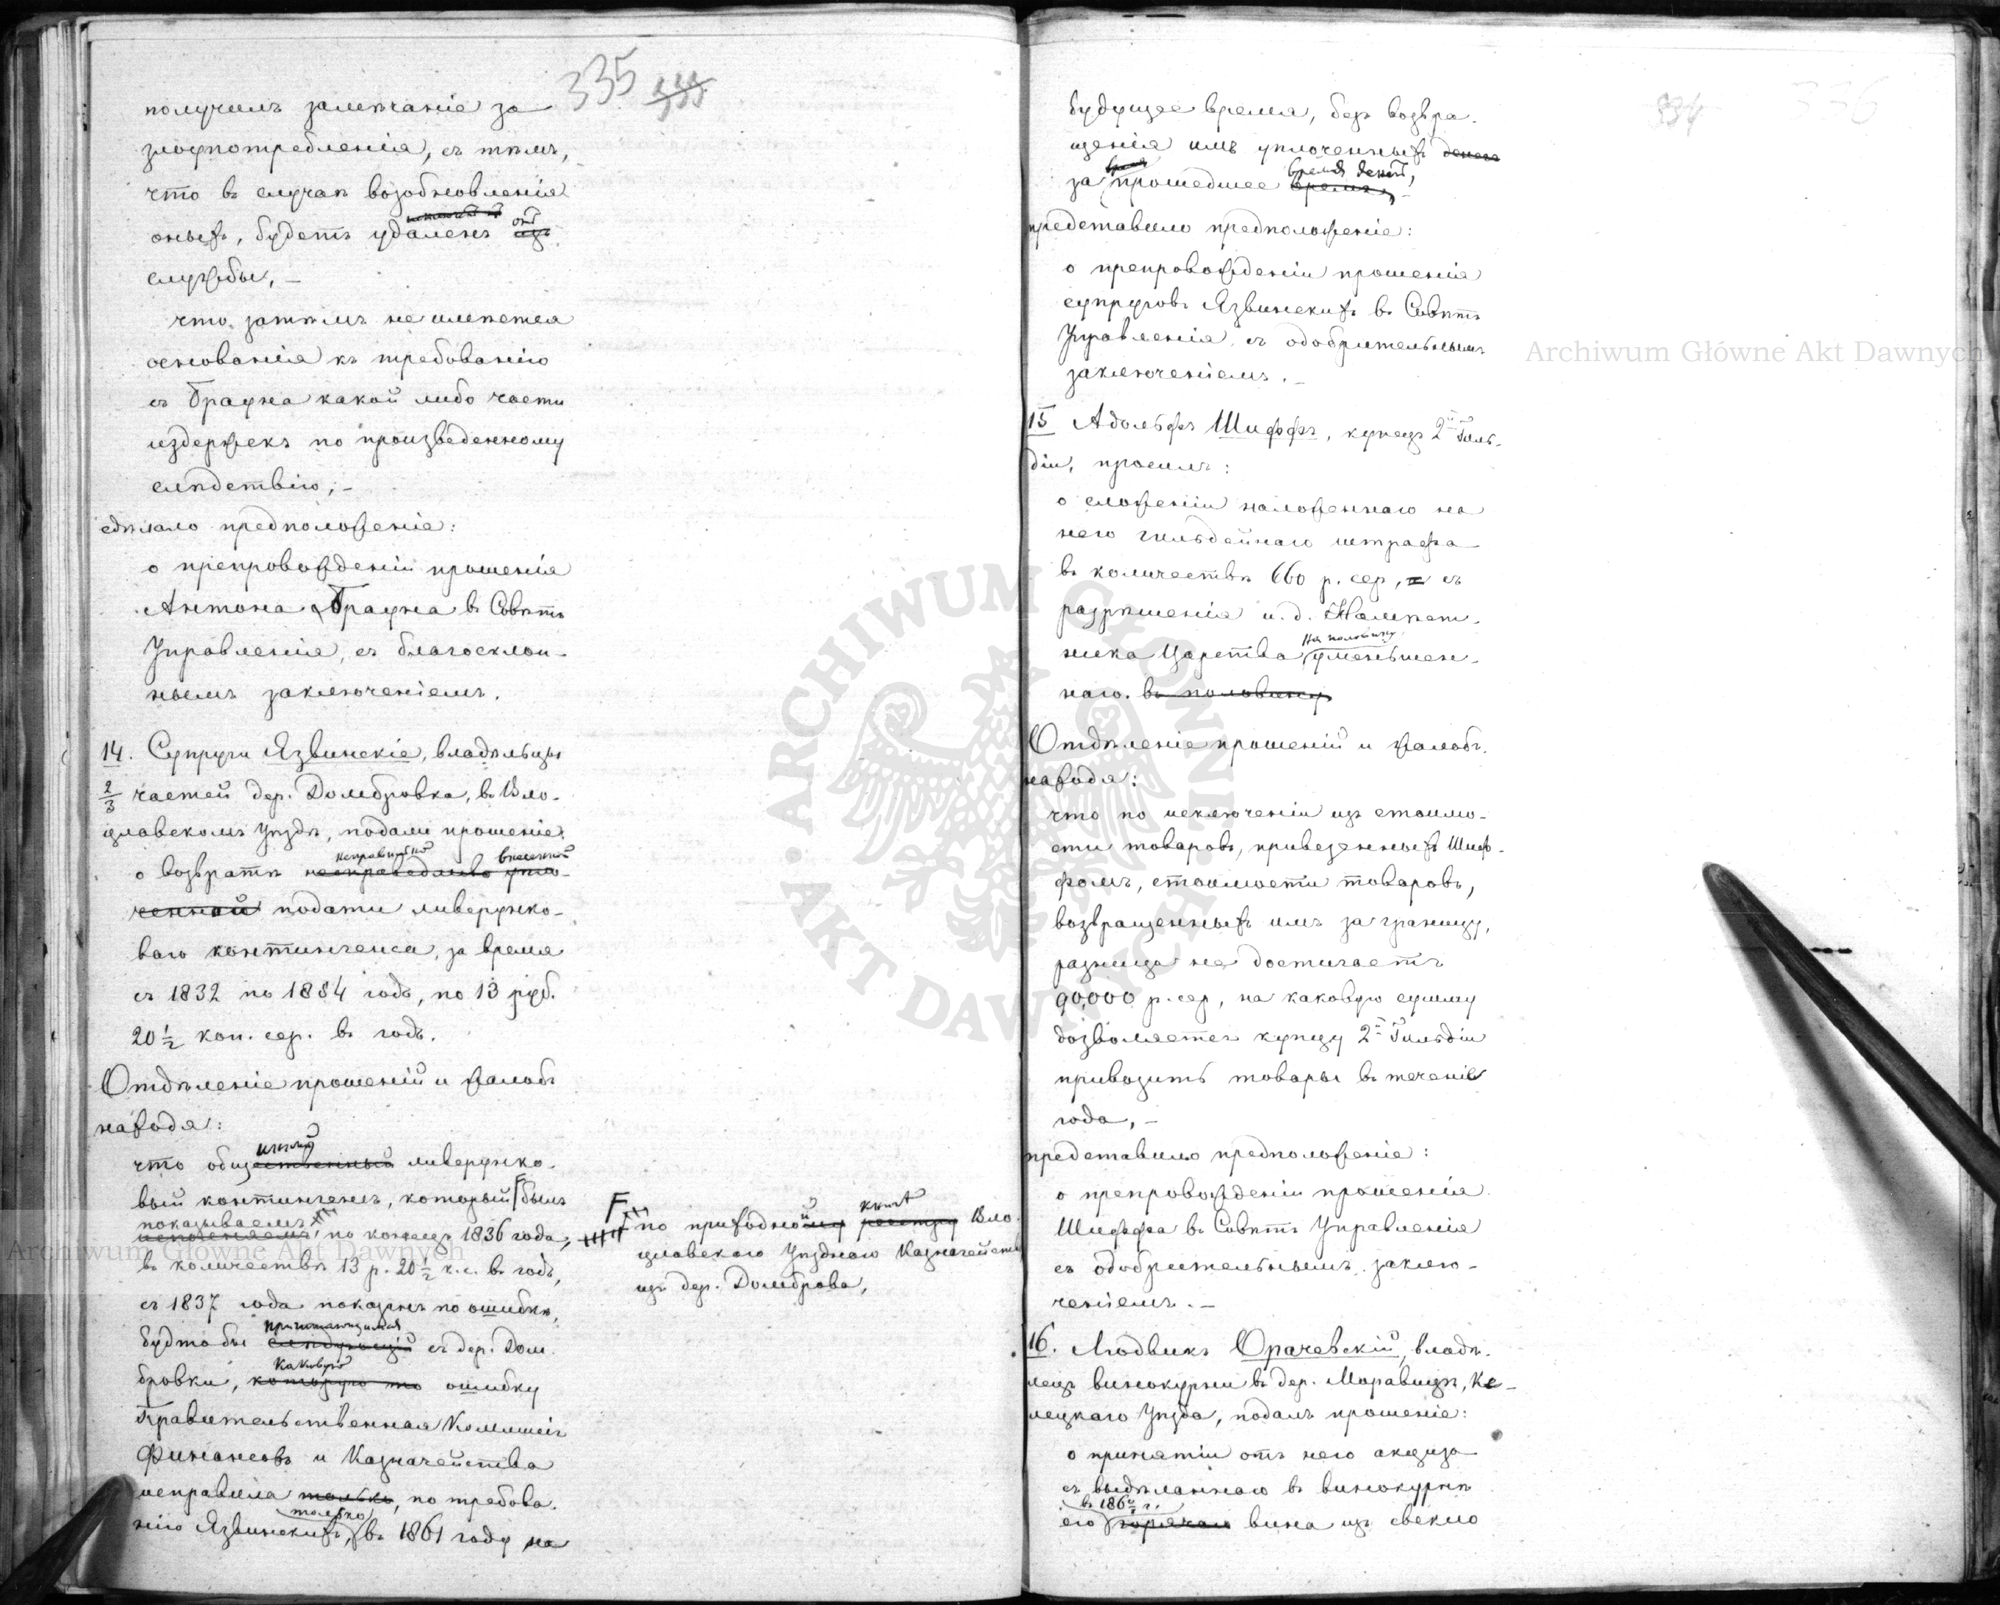 335 333
получилъ замѣчаніе за
злоупотребленія, съ тѣмъ,
что въ случаѣ возобновленія
оныхъ, будетъ удаленъ отъ изъ
службы, —
что затѣмъ не имѣется
основанія къ требованію
съ Брауна какой либо части
издержекъ по произведенному
слѣдствію, —
сдѣлало предположеніе:
о препровожденіи прошенія
Антона Брауна въ Совѣтъ
Управленія, съ благосклон-
нымъ заключеніемъ.
14. Супруги Язвинскіе, владѣльцы
2/3 частей дер. Домбровка, въ Вло-
цлавскомъ Уѣздѣ, подали прошеніе:
неправильно внесенной
о возвратѣ несправедливо упла-
ченной подати ливерунко-
ваго контингенса, за время
съ 1832 по 1884 годъ, по 13 руб.
20 1/2 коп. сер. въ годъ.
Отдѣленіе прошеній и жалобъ
находя:
что общественный ливерунко-
вый контингенсъ, который былъ
показываемъ
исчисляемъ, по конецъ 1836 года,
въ количествѣ 13 р. 20 1/2 к. с. въ годъ,
съ 1837 года показанъ по ошибкѣ,
причитающимся
будто бы слѣдующій съ дер. Дом-
каковую
бровки, которую то ошибку
Правительственная Коммисія
Финансовъ и Казначейства
исправила только, по требова-
только
нію Язвинскихъ, въ 1861 году на
F по приходной книгѣ реестру Вло-
цлавскаго Уѣзднаго Казначейства
изъ дер. Домброва,
334 336
будущее время, безъ возвра-
щенія имъ уплоченныхъ денегъ
время денегъ,
за прошедшее время,
представило предположеніе:
о препровожденіи прошенія
супруговъ Язвинскихъ въ Совѣтъ
Управленія, съ одобрительнымъ
заключеніемъ. —
15 Адольфъ Шиффъ, купецъ 2й Гиль-
діи, просилъ:
о сложеніи наложеннаго на
него гильдейнаго штрафа
въ количествѣ 660 р. сер, съ
разрѣшенія и. д. Намѣст-
на половину
ника Царства уменьшен-
наго. въ половину
Отдѣленіе прошеній и жалобъ,
находя:
что по исключеніи изъ стоимо-
сти товаровъ, привезенныхъ Шиф-
фомъ, стоимости товаровъ,
возвращенныхъ имъ за границу,
разница не достигаетъ
90,000 р. сер, на каковую сумму
дозволяется купцу 2й Гильдіи
привозить товары въ теченіе
года, —
представило предположеніе:
о препровожденіи прошенія
Шиффа въ Совѣтъ Управленія
съ одобрительнымъ заклю-
ченіемъ. —
16. Людвикъ Орачевскій, владѣ-
лецъ винокурни въ дер. Моравицѣ, Кѣ-
лецкаго Уѣзда, подалъ прошеніе:
о принятіи отъ него акциза
съ выдѣланнаго въ винокурнѣ
его горячаго вина изъ свекло
Archiwum Główne Akt Dawnych
Archiwum Główne Akt Dawnych
ARCHIWUM GŁÓWNE AKT DAWNYCH